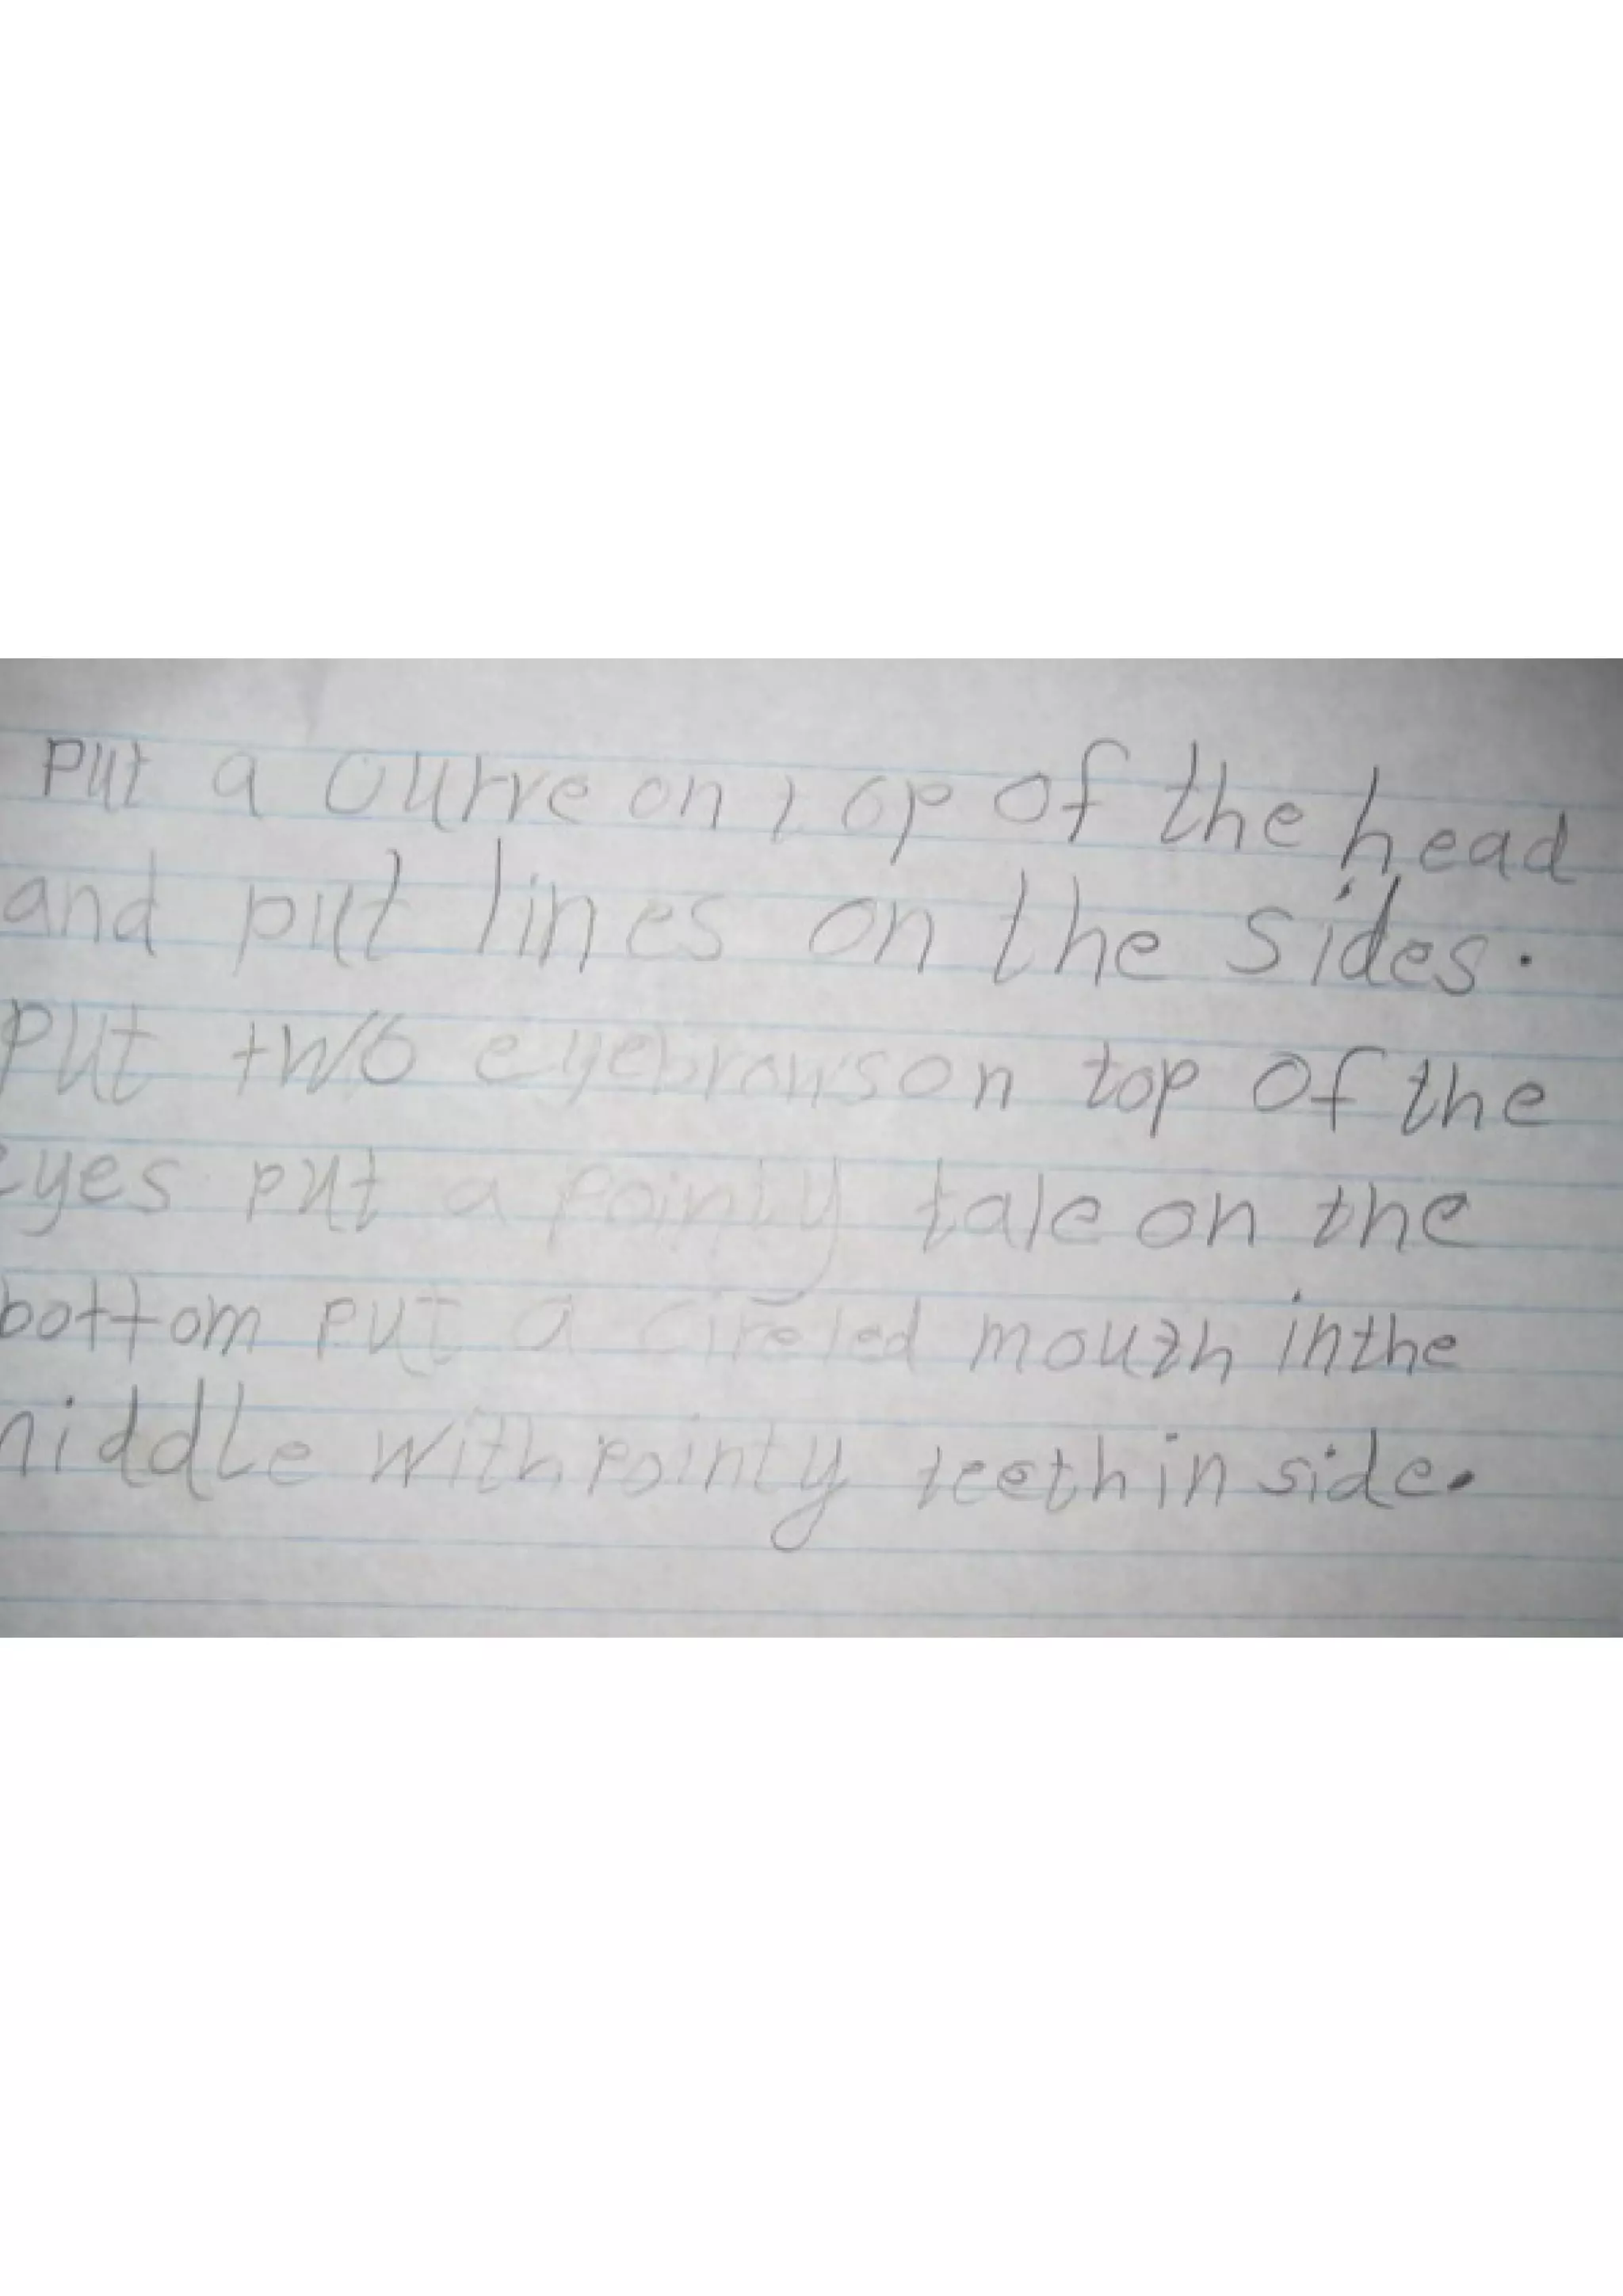 Put a curve on top of the head
and put lines on the sides.
Put two eyebrows on top of the
eyes put a pointy tale on the
bottom put a circled mouth in the
middle with pointy teeth in side.